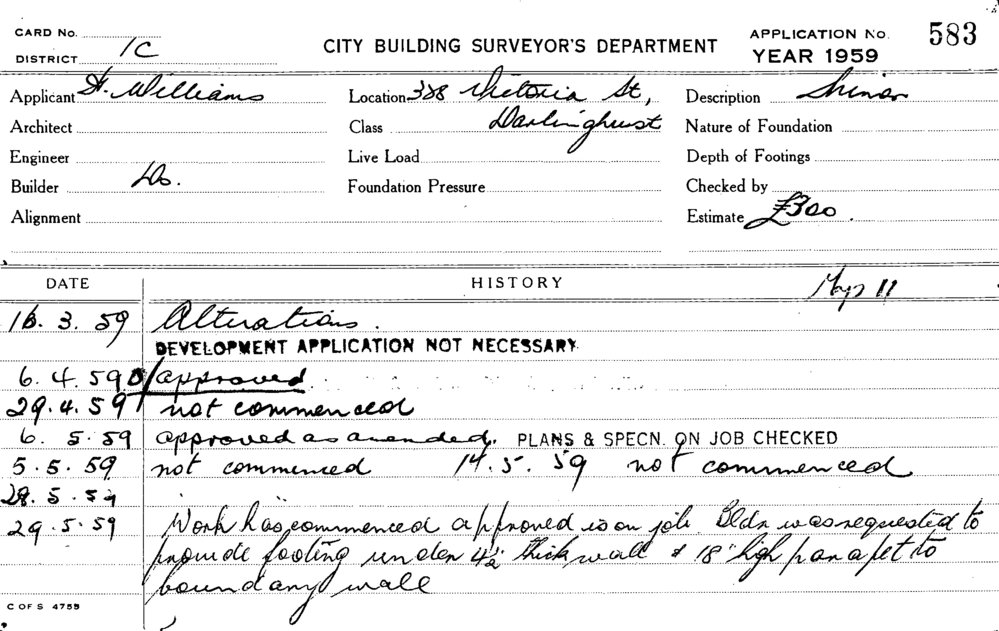 CARD No.
DISTRICT 1C
CITY BUILDING SURVEYOR'S DEPARTMENT
APPLICATION No. 583
YEAR 1959
Applicant H. Williams
Location 388 Victoria St,
Darlinghurst
Description Minor
Architect
Class
Nature of Foundation
Engineer
Live Load
Depth of Footings
Builder Do.
Foundation Pressure
Checked by
Alignment
Estimate £300.
DATE
HISTORY
Map 11
16. 3. 59 Alterations.
DEVELOPMENT APPLICATION NOT NECESSARY.
6. 4. 59 approved
29. 4. 59 not commenced
6. 5. 59 approved as amended. PLANS & SPECN. ON JOB CHECKED
5. 5. 59 not commenced 14. 5. 59 not commenced
28. 5. 59
29. 5. 59 Work has commenced approved is on job Bldr was requested to
provide footing under 4½" thick wall & 18" high parapet to
boundary wall
C OF S 4755